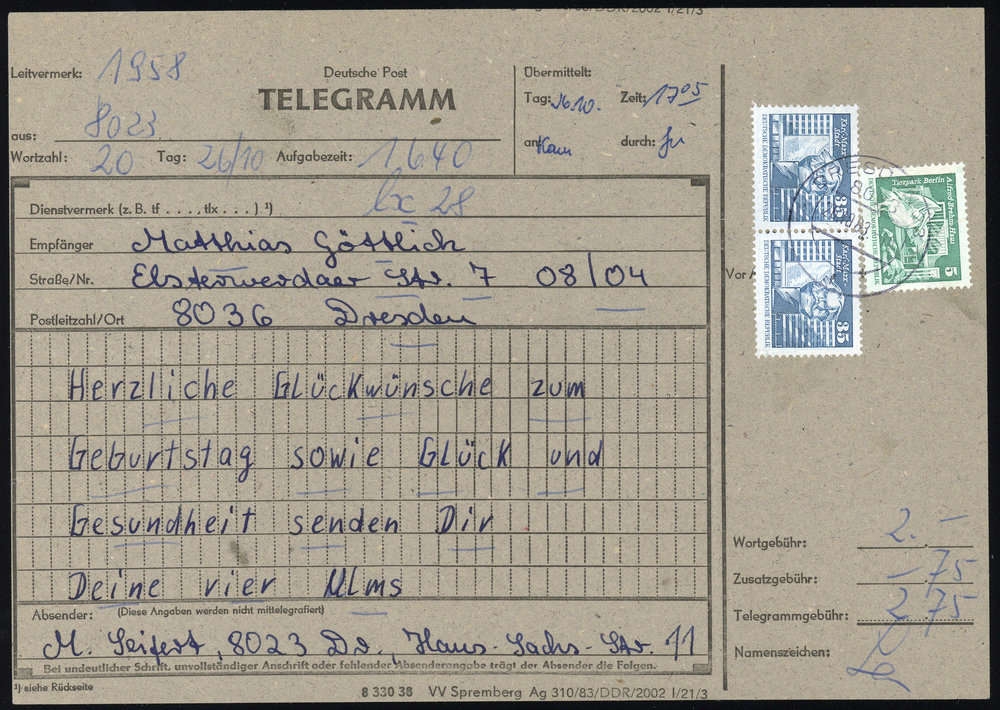 310/83/DDR/2002 I/21/3
Leitvermerk: 1958
Deutsche Post
TELEGRAMM
Übermittelt:
Tag: 26.10. Zeit: 17 05
an: durch:
8023
aus:
Wortzahl: 20 Tag: 26/10 Aufgabezeit: 1640
Dienstvermerk (z. B. tf . . . ., tlx . . . . ) ¹) lx 28
Empfänger Matthias Göttlich
Straße/Nr. Elsterwerdaer Str. 7 08/04
Postleitzahl/Ort 8036 Dresden
Herzliche Glückwünsche zum
Geburtstag sowie Glück und
Gesundheit senden Dir
Deine vier Ulms
Absender: (Diese Angaben werden nicht mittelegrafiert)
M. Seifert, 8023 Dr., Hans-Sachs-Str. 11
Bei undeutlicher Schrift, unvollständiger Anschrift oder fehlender Absenderangabe trägt der Absender die Folgen.
¹) siehe Rückseite
8 330 38 VV Spremberg Ag 310/83/DDR/2002 I/21/3
Karl-Marx-Stadt
DEUTSCHE DEMOKRATISCHE REPUBLIK
85
Karl-Marx-Stadt
DEUTSCHE DEMOKRATISCHE REPUBLIK
85
Tierpark Berlin
Alfred-Brehm-Haus
5
Vor A
Wortgebühr: 2.–
Zusatzgebühr: –.75
Telegrammgebühr: 2.75
Namenszeichen: